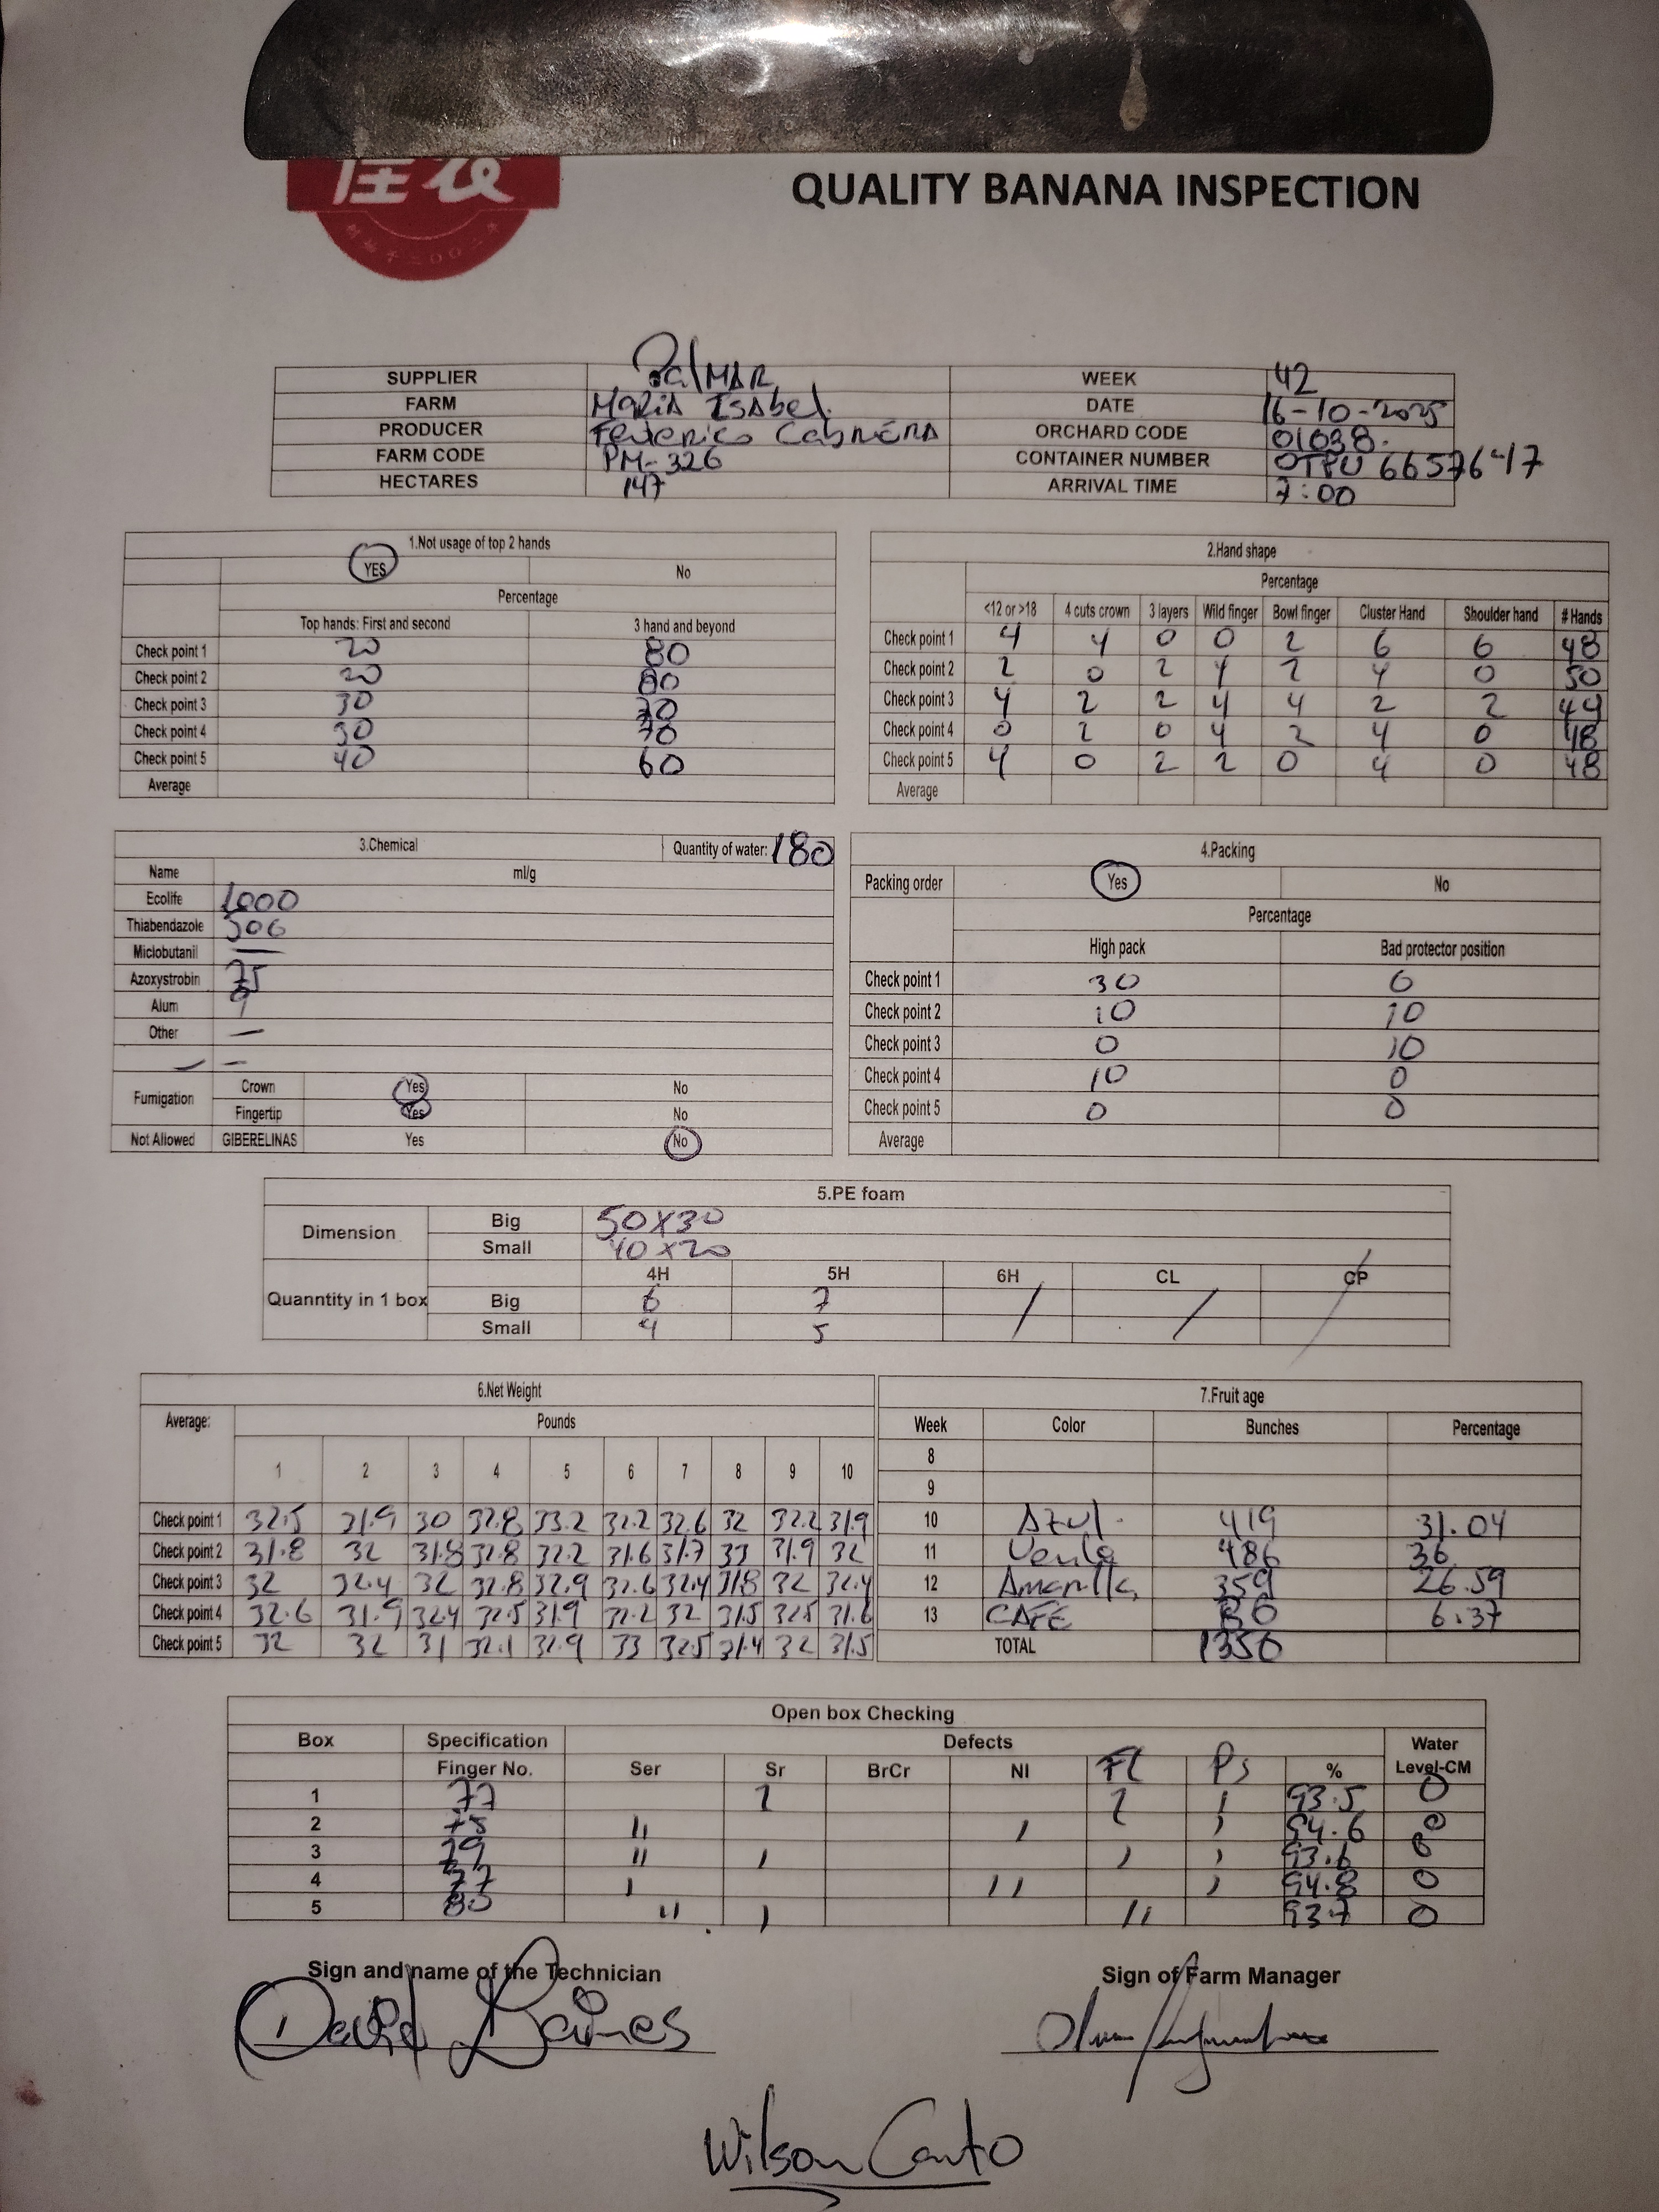 佳农
QUALITY BANANA INSPECTION
SUPPLIER PalMAR WEEK 42
FARM MARIA ISAbel. DATE 16-10-2025
PRODUCER Federico CabRERA ORCHARD CODE 01638.
FARM CODE PM-326 CONTAINER NUMBER OTPU 6657617
HECTARES 147 ARRIVAL TIME 7:00
1.Not usage of top 2 hands
YES No
Percentage
Top hands: First and second 3 hand and beyond
Check point 1 20 80
Check point 2 20 80
Check point 3 30 70
Check point 4 30 70
Check point 5 40 60
Average
2.Hand shape
Percentage
<12 or >18 4 cuts crown 3 layers Wild finger Bowl finger Cluster Hand Shoulder hand # Hands
Check point 1 4 4 0 0 2 6 6 48
Check point 2 2 0 2 4 2 4 0 50
Check point 3 4 2 2 4 4 2 2 49
Check point 4 0 2 0 4 2 4 0 48
Check point 5 4 0 2 2 0 4 0 48
Average
3.Chemical Quantity of water: 180
Name ml/g
Ecolife 1000
Thiabendazole 506
Miclobutanil —
Azoxystrobin 75
Alum
Other —
— —
Fumigation Crown Yes No
Fingertip Yes No
Not Allowed GIBERELINAS Yes No
4.Packing
Packing order Yes No
Percentage
High pack Bad protector position
Check point 1 30 0
Check point 2 10 10
Check point 3 0 10
Check point 4 10 0
Check point 5 0 0
Average
5.PE foam
Dimension Big 50X30
Small 40X20
4H 5H 6H CL CP
Quanntity in 1 box Big 6 7 / / /
Small 4 5
6.Net Weight
Average: Pounds
1 2 3 4 5 6 7 8 9 10
Check point 1 32.5 31.9 30 32.8 33.2 32.2 32.6 32 32.2 31.9
Check point 2 31.8 32 31.8 32.8 32.2 31.6 31.7 33 31.9 32
Check point 3 32 32.4 32 32.8 32.9 32.6 32.4 31.8 32 32.4
Check point 4 32.6 31.9 32.4 32.5 31.9 32.2 32 31.5 32.5 31.6
Check point 5 32 32 31 32.1 32.9 33 32.5 31.4 32 31.5
7.Fruit age
Week Color Bunches Percentage
8
9
10 Azul. 419 31.04
11 Verde 486 36
12 Amarilla 359 26.59
13 CAFE 86 6.37
TOTAL 1350
Open box Checking
Box Specification Defects Water
Finger No. Ser Sr BrCr NI FL Ps % Level-CM
1 77 2 2 1 93.5 0
2 75 11 1 1 94.6 0
3 79 11 1 1 1 93.6 0
4 77 1 11 1 94.8 0
5 80 11 1 11 93.7 0
Sign and name of the Technician Sign of Farm Manager
David Gaines
Wilson Canto